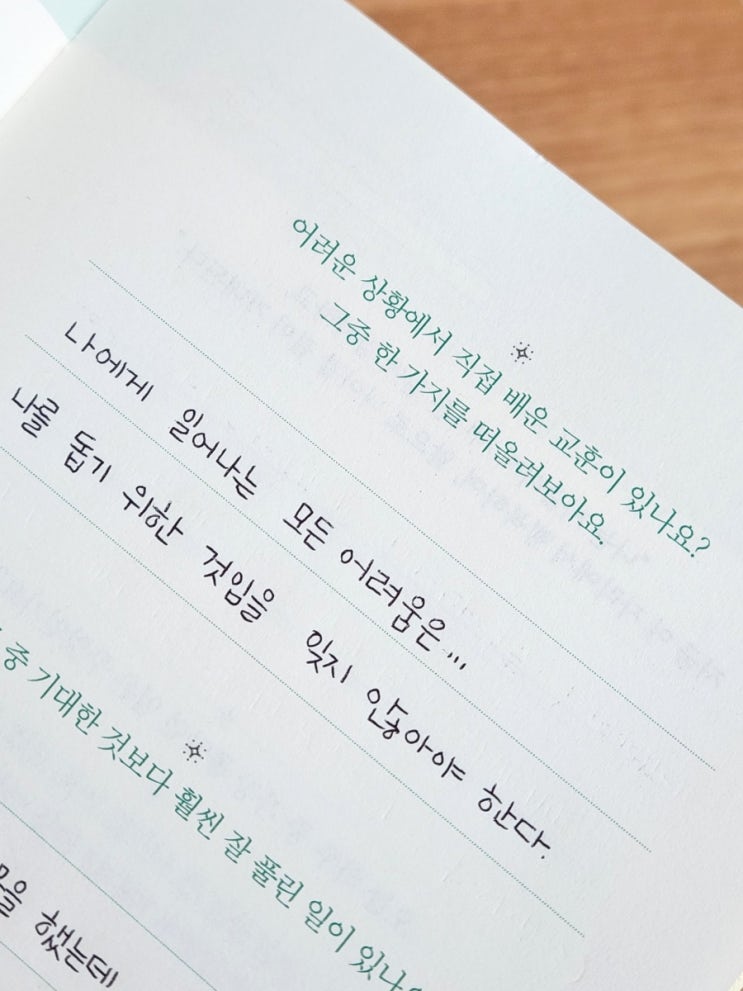 어려운 상황에서 직접 배운 교훈이 있나요?
그중 한 가지를 떠올려보아요.
나에게 일어나는 모든 어려움은...
나를 돕기 위한 것임을 잊지 않아야 한다.
중 기대한 것보다 훨씬 잘 풀린 일이 있나
했는데